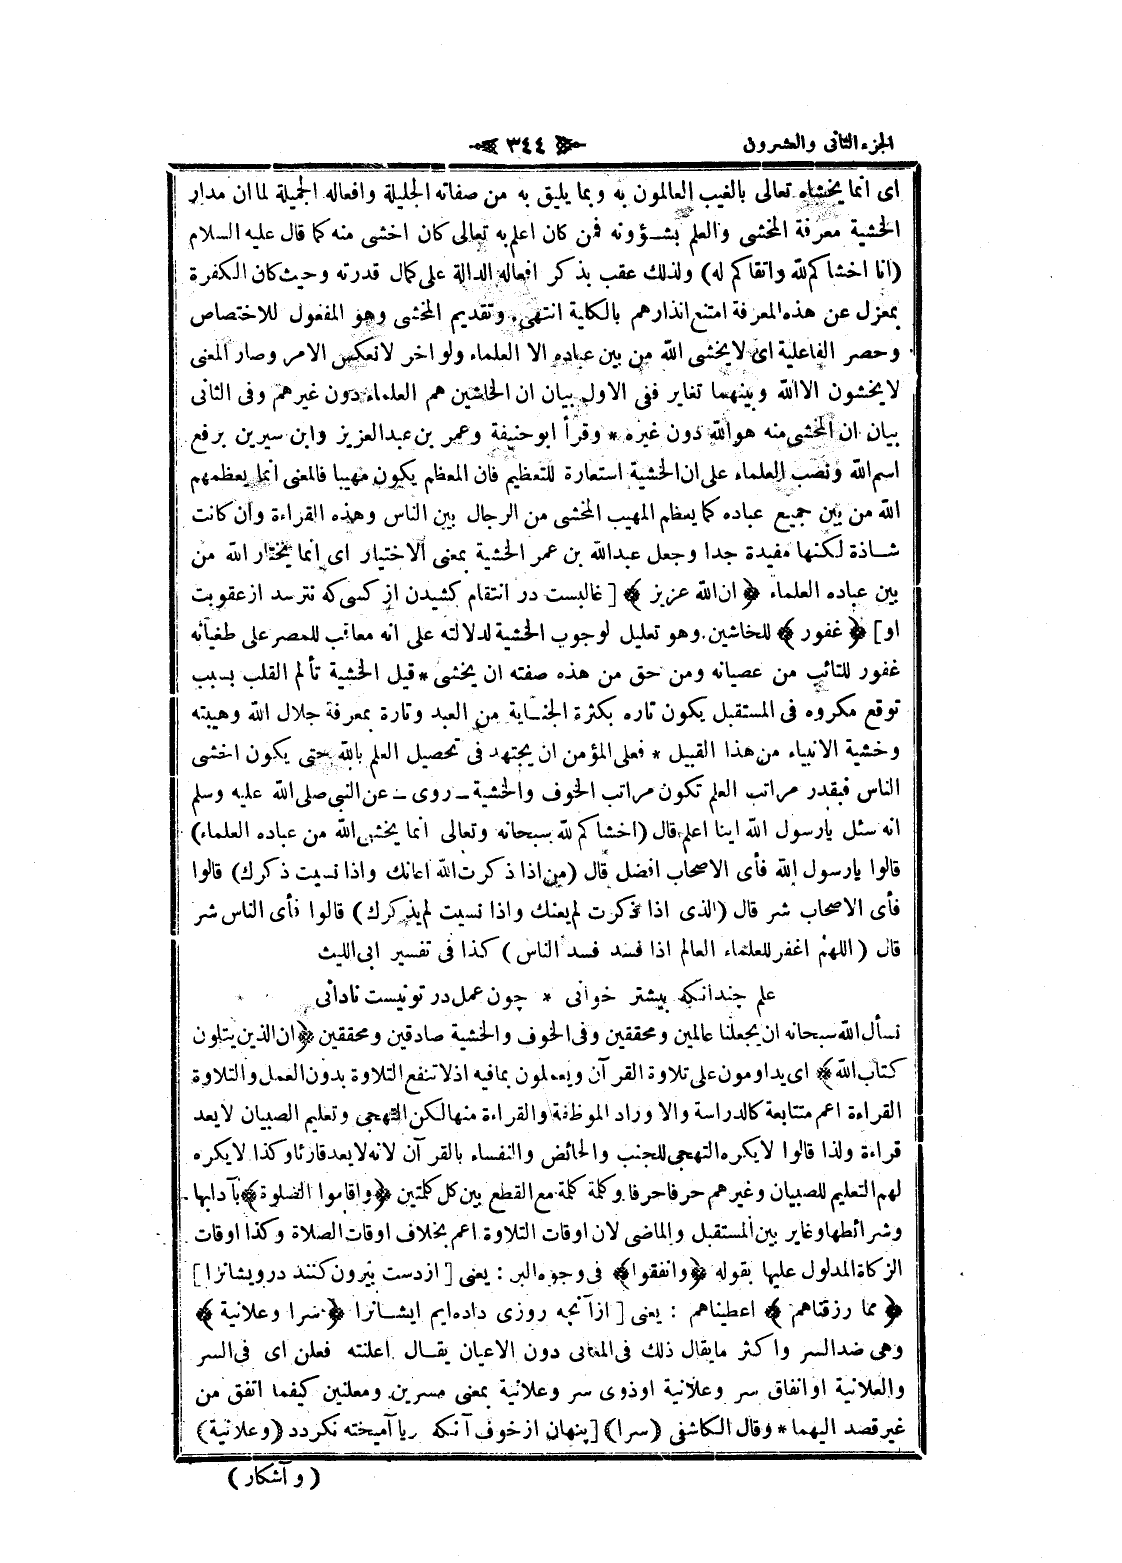 الجزء الثانى والعشرون
٣٤٤
اى انما يخشاه تعالى بالغيب العالمون به وبما يليق به من صفاته الجليلة وافعاله الجميلة لما ان مدار
الخشية معرفة المخشى والعلم بشؤونه فمن كان اعلم به تعالى كان اخشى منه كما قال عليه السلام
(انا اخشاكم لله واتقاكم له) ولذلك عقب بذكر افعاله الدالة على كمال قدرته وحيث كان الكفرة
بمعزل عن هذه المعرفة امتنع انذارهم بالكلية انتهى. وتقديم المخشى وهو المفعول للاختصاص
وحصر الفاعلية اى لا يخشى الله من بين عباده الا العلماء ولو اخر لانعكس الامر وصار المعنى
لا يخشون الا الله وبينهما تغاير ففى الاول بيان ان الخاشين هم العلماء دون غيرهم وفى الثانى
بيان ان المخشى منه هو الله دون غيره * وقرأ ابو حنيفة وعمر بن عبد العزيز وابن سيرين برفع
اسم الله ونصب العلماء على ان الخشية استعارة للتعظيم فان المعظم يكون مهيبا فالمعنى انما يعظمهم
الله من بين جميع عباده كما يعظم المهيب المخشى من الرجال بين الناس وهذه القراءة وان كانت
شاذة لكنها مفيدة جدا وجعل عبدالله بن عمر الخشية بمعنى الاختيار اى انما يختار الله من
بين عباده العلماء ﴿ ان الله عزيز ﴾ [ غالبست در انتقام كشيدن از كسى كه نترسد از عقوبت
او] ﴿ غفور ﴾ للخاشين. وهو تعليل لوجوب الخشية لدلالته على انه معاقب للمصر على طغيانه
غفور للتائب من عصيانه ومن حق من هذه صفته ان يخشى * قيل الخشية تألم القلب بسبب
توقع مكروه فى المستقبل يكون تاره بكثرة الجناية من العبد وتارة بمعرفة جلال الله وهيبته
وخشية الانبياء من هذا القبيل * فعلى المؤمن ان يجتهد فى تحصيل العلم بالله حتى يكون اخشى
الناس فبقدر مراتب العلم تكون مراتب الخوف والخشية ـ روى ـ عن النبى صلى الله عليه وسلم
انه سئل يا رسول الله اينا اعلم قال (اخشاكم لله سبحانه وتعالى انما يخشى الله من عباده العلماء)
قالوا يا رسول الله فأى الاصحاب افضل قال (من اذا ذكرت الله اعانك واذا نسيت ذكرك) قالوا
فأى الاصحاب شر قال (الذى اذا ذكرت لم يعنك واذا نسيت لم يذكرك) قالوا فأى الناس شر
قال (اللهم اغفر للعلماء العالم اذا فسد فسد الناس) كذا فى تفسير ابى الليث
علم چندانكه بيشتر خوانى * چون عمل در تو نيست نادانى
نسأل الله سبحانه ان يجعلنا عالمين ومحققين وفى الخوف والخشية صادقين ومحققين ﴿ ان الذين يتلون
كتاب الله ﴾ اى يداومون على تلاوة القرآن ويعملون بما فيه اذ لا تنفع التلاوة بدون العمل والتلاوة
القراءة اعم متتابعة كالدراسة والاوراد الموظفة والقراءة منها لكن التهجى وتعليم الصبيان لا يعد
قراءة ولذا قالوا لا يكره التهجى للجنب والحائض والنفساء بالقرآن لانه لا يعد قارئا وكذا لا يكره
لهم التعليم للصبيان وغيرهم حرفا حرفا وكلمة كلمة مع القطع بين كل كلمتين ﴿ واقاموا الصلوة ﴾ بآدابها
وشرائطها وغاير بين المستقبل والماضى لان اوقات التلاوة اعم بخلاف اوقات الصلاة وكذا اوقات
الزكاة المدلول عليها بقوله ﴿ وانفقوا ﴾ فى وجوه البر : يعنى [ از دست بيرون كنند درويشانرا ]
﴿ مما رزقناهم ﴾ اعطيناهم : يعنى [ از آنجه روزى داده ايم ايشانرا ﴿ سرا وعلانية ﴾
وهى ضد السر واكثر ما يقال ذلك فى المعانى دون الاعيان يقال اعلنته فعلن اى فى السر
والعلانية او انفاق سر وعلانية او ذوى سر وعلانية بمعنى مسرين ومعلنين كيفما اتفق من
غير قصد اليهما * وقال الكاشفى (سرا) [ پنهان از خوف آنكه ريا آميخته نكردد (وعلانية)
( و آشكار )